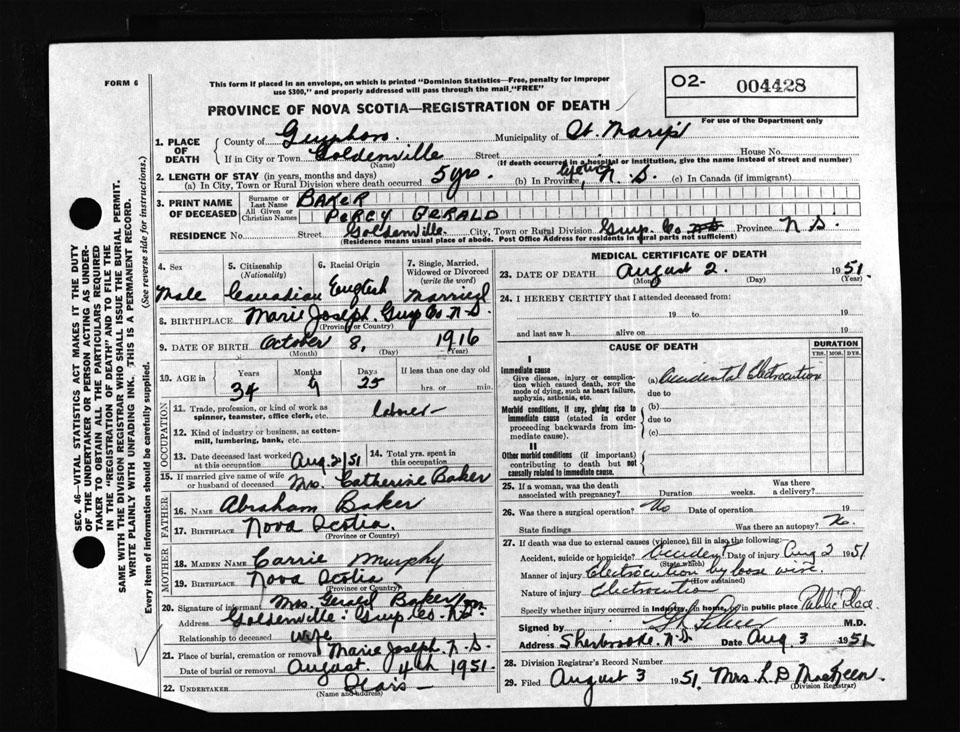 FORM 6
This form if placed in an envelope, on which is printed "Dominion Statistics—Free, penalty for improper
use $300," and properly addressed will pass through the mail "FREE"
O2- 004428
For use of the Department only
PROVINCE OF NOVA SCOTIA—REGISTRATION OF DEATH
1. PLACE OF DEATH
County of Guysboro. Municipality of St. Mary's
If in City or Town Goldenville Street House No.
(Name) (If death occurred in a hospital or institution, give the name instead of street and number)
2. LENGTH OF STAY (in years, months and days)
(a) In City, Town or Rural Division where death occurred 5 yrs. (b) In Province, N. S. (c) In Canada (if immigrant)
3. PRINT NAME OF DECEASED
Surname or Last Name BAKER
All Given or Christian Names PERCY GERALD
RESIDENCE No. Street Goldenville. City, Town or Rural Division Guys. Co Province N S.
(Residence means usual place of abode. Post Office Address for residents in rural parts not sufficient)
SEC. 46—VITAL STATISTICS ACT MAKES IT THE DUTY
OF THE UNDERTAKER OR PERSON ACTING AS UNDER-
TAKER TO OBTAIN ALL THE PARTICULARS REQUIRED
IN THE "REGISTRATION OF DEATH" AND TO FILE THE
SAME WITH THE DIVISION REGISTRAR WHO SHALL ISSUE THE BURIAL PERMIT.
WRITE PLAINLY WITH UNFADING INK. THIS IS A PERMANENT RECORD.
Every item of information should be carefully supplied. (See reverse side for instructions.)
4. Sex
Male
5. Citizenship
(Nationality)
Canadian
6. Racial Origin
English
7. Single, Married,
Widowed or Divorced
(write the word)
Married
8. BIRTHPLACE Marie Joseph. Guys Co. N. S.
(Province or Country)
9. DATE OF BIRTH October 8, 1916
(Month) (Day) (Year)
10. AGE in
Years Months Days If less than one day old
34 9 25 hrs. or min.
OCCUPATION
11. Trade, profession, or kind of work as
spinner, teamster, office clerk, etc. laborer
12. Kind of industry or business, as cotton-
mill, lumbering, bank, etc.
13. Date deceased last worked
at this occupation Aug 2/51
14. Total yrs. spent in
this occupation
15. If married give name of wife
or husband of deceased Mrs. Catherine Baker
FATHER
16. Name Abraham Baker
17. Birthplace Nova Scotia.
(Province or Country)
MOTHER
18. MAIDEN NAME Carrie Murphy
19. BIRTHPLACE Nova Scotia
(Province or Country)
20. Signature of informant Mrs. Gerald Baker
Address Goldenville. Guys. Co. N. S.
Relationship to deceased wife
21. Place of burial, cremation or removal Marie Joseph. N. S.
Date of burial or removal August. 4th 1951.
22. UNDERTAKER
(Name and address)
MEDICAL CERTIFICATE OF DEATH
23. DATE OF DEATH August 2. 1951.
(Month) (Day) (Year)
24. I HEREBY CERTIFY that I attended deceased from:
19 to 19
and last saw h alive on 19
CAUSE OF DEATH
DURATION
YRS. MOS. DYS.
I
Immediate cause
Give disease, injury or complica-
tion which caused death, NOT the
mode of dying, such as heart failure,
asphyxia, asthenia, etc.
(a) Accidental Electrocution
due to
Morbid conditions, if any, giving rise to
immediate cause (stated in order
proceeding backwards from im-
mediate cause).
(b)
due to
(c)
II
Other morbid conditions (if important)
contributing to death but not
causally related to immediate cause.
25. If a woman, was the death
associated with pregnancy? Duration weeks. Was there
a delivery?
26. Was there a surgical operation? No Date of operation 19
State findings Was there an autopsy? No.
27. If death was due to external causes (violence) fill in also the following:
Accident, suicide or homicide? Accident Date of injury Aug 2 1951
(State which)
Manner of injury Electrocution by loose wire.
(How sustained)
Nature of injury Electrocution
Specify whether injury occurred in industry, in home, or in public place Public Place
Signed by M.D.
Address Sherbrooke. N. S. Date Aug 3 1951
28. Division Registrar's Record Number
29. Filed August 3 1951. Mrs. L. D MacKeen.
(Division Registrar)